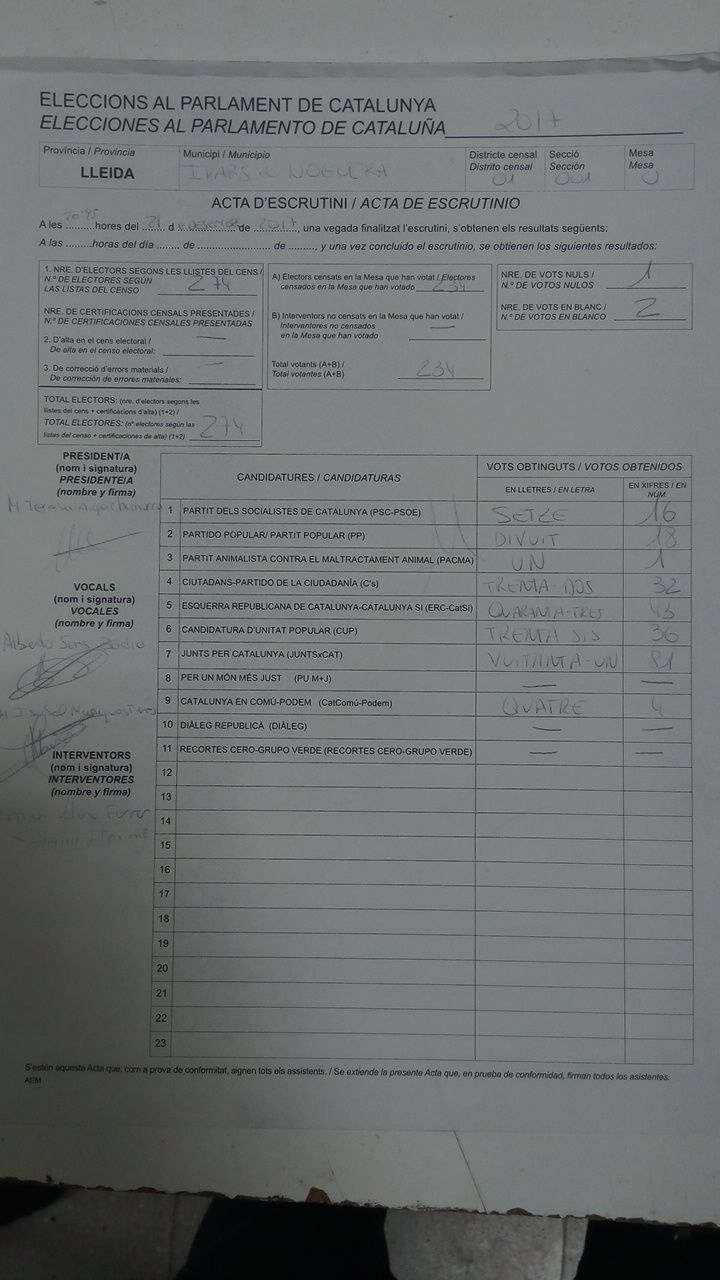 ELECCIONS AL PARLAMENT DE CATALUNYA
ELECCIONES AL PARLAMENTO DE CATALUÑA 2017
Província / Provincia
LLEIDA
Municipi / Municipio
IVARS NOGUERA
Districte censal
Distrito censal
01
Secció
Sección
001
Mesa
Mesa
U
ACTA D'ESCRUTINI / ACTA DE ESCRUTINIO
A les 20:45 hores del 21 de desembre de 2017, una vegada finalitzat l'escrutini, s'obtenen els resultats següents:
A las .........horas del día ........ de ......................... de ........., y una vez concluido el escrutinio, se obtienen los siguientes resultados:
1. NRE. D'ELECTORS SEGONS LES LLISTES DEL CENS /
N.º DE ELECTORES SEGÚN
LAS LISTAS DEL CENSO 274
NRE. DE CERTIFICACIONS CENSALS PRESENTADES /
N.º DE CERTIFICACIONES CENSALES PRESENTADAS
2. D'alta en el cens electoral / —
De alta en el censo electoral:
3. De correcció d'errors materials / —
De corrección de errores materiales:
TOTAL ELECTORS: (nre. d'electors segons les
llistes del cens + certificacions d'alta) (1+2) /
TOTAL ELECTORES: (nº electores según las
listas del censo + certificaciones de alta) (1+2) 274
A) Electors censats en la Mesa que han votat / Electores
censados en la Mesa que han votado 234
B) Interventors no censats en la Mesa que han votat /
Interventores no censados —
en la Mesa que han votado
Total votants (A+B) /
Total votantes (A+B) 234
NRE. DE VOTS NULS /
N.º DE VOTOS NULOS 1
NRE. DE VOTS EN BLANC /
N.º DE VOTOS EN BLANCO 2
PRESIDENT/A
(nom i signatura)
PRESIDENTE/A
(nombre y firma)
M Teresa
VOCALS
(nom i signatura)
VOCALES
(nombre y firma)
Alberto
M Isabel
INTERVENTORS
(nom i signatura)
INTERVENTORES
(nombre y firma)
CANDIDATURES / CANDIDATURAS
VOTS OBTINGUTS / VOTOS OBTENIDOS
EN LLETRES / EN LETRA
EN XIFRES / EN NÚM.
1 PARTIT DELS SOCIALISTES DE CATALUNYA (PSC-PSOE) SETZE 16
2 PARTIDO POPULAR/ PARTIT POPULAR (PP) DIVUIT 18
3 PARTIT ANIMALISTA CONTRA EL MALTRACTAMENT ANIMAL (PACMA) UN 1
4 CIUTADANS-PARTIDO DE LA CIUDADANÍA (C's) TRENTA-DOS 32
5 ESQUERRA REPUBLICANA DE CATALUNYA-CATALUNYA SI (ERC-CatSí) QUARANTA-TRES 43
6 CANDIDATURA D'UNITAT POPULAR (CUP) TRENTA SIS 36
7 JUNTS PER CATALUNYA (JUNTSxCAT) VUITANTA-UN 81
8 PER UN MÓN MÉS JUST (PU M+J) — —
9 CATALUNYA EN COMÚ-PODEM (CatComú-Podem) QUATRE 4
10 DIÀLEG REPUBLICÀ (DIÀLEG) — —
11 RECORTES CERO-GRUPO VERDE (RECORTES CERO-GRUPO VERDE) — —
12
13
14
15
16
17
18
19
20
21
22
23
S'estén aquesta Acta que, com a prova de conformitat, signen tots els assistents. / Se extiende la presente Acta que, en prueba de conformidad, firman todos los asistentes.
AEM